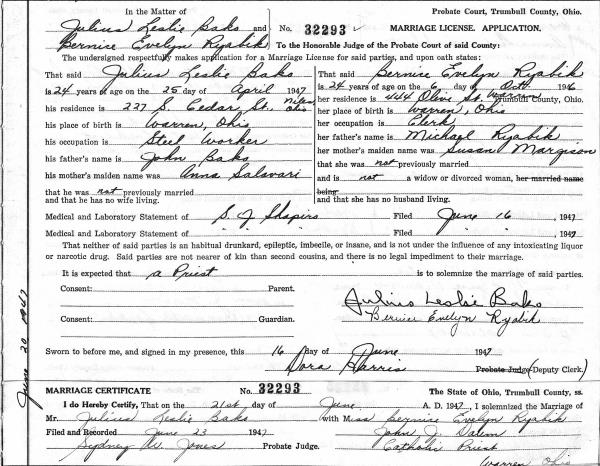 In the Matter of
Julius Leslie Baks and
Bernice Evelyn Ryabik
No. 32293
Probate Court, Trumbull County, Ohio.
MARRIAGE LICENSE. APPLICATION.
To the Honorable Judge of the Probate Court of said County:
The undersigned respectfully makes application for a Marriage License for said parties, and upon oath states:
That said Julius Leslie Baks
is 24 years of age on the 25 day of April 1947
his residence is 227 S. Cedar St. Niles Ohio
his place of birth is Warren, Ohio
his occupation is Steel Worker
his father's name is John Baks
his mother's maiden name was Anna Salavari
that he was not previously married
and that he has no wife living.
That said Bernice Evelyn Ryabik
is 24 years of age on the 6 day of Oct. 1946
her residence is 444 Olive St. Warren Trumbull County, Ohio.
her place of birth is Warren, Ohio
her occupation is Clerk
her father's name is Michael Ryabik
her mother's maiden name was Susan Margison
that she was not previously married
and is not a widow or divorced woman, her married name
being
and that she has no husband living.
Medical and Laboratory Statement of S. J. Shapiro Filed June 16, 1947
Medical and Laboratory Statement of " " " Filed " " , 1947
That neither of said parties is an habitual drunkard, epileptic, imbecile, or insane, and is not under the influence of any intoxicating liquor
or narcotic drug. Said parties are not nearer of kin than second cousins, and there is no legal impediment to their marriage.
It is expected that a Priest is to solemnize the marriage of said parties.
Consent: Parent.
Julius Leslie Baks
Consent: Guardian.
Bernice Evelyn Ryabik
Sworn to before me, and signed in my presence, this 16 day of June 1947
Dora Harris Probate Judge (Deputy Clerk)
June 20 1947
MARRIAGE CERTIFICATE No. 32293 The State of Ohio, Trumbull County, ss.
I do Hereby Certify, That on the 21st day of June A. D. 1947, I solemnized the Marriage of
Mr. Julius Leslie Baks with Miss Bernice Evelyn Ryabik
Filed and Recorded June 23 1947 John J. Daum
Sydney W. Jones Probate Judge. Catholic Priest
Warren Ohio